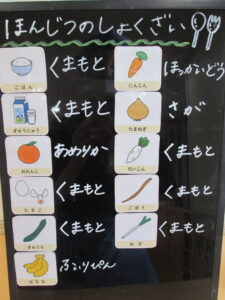 ほんじつのしょくざい
ごはん くまもと
ぎゅうにゅう くまもと
おれんじ あめりか
たまご くまもと
きゅうり くまもと
ばなな ふぃりぴん
にんじん ほっかいどう
たまねぎ さが
だいこん くまもと
ごぼう くまもと
ねぎ くまもと